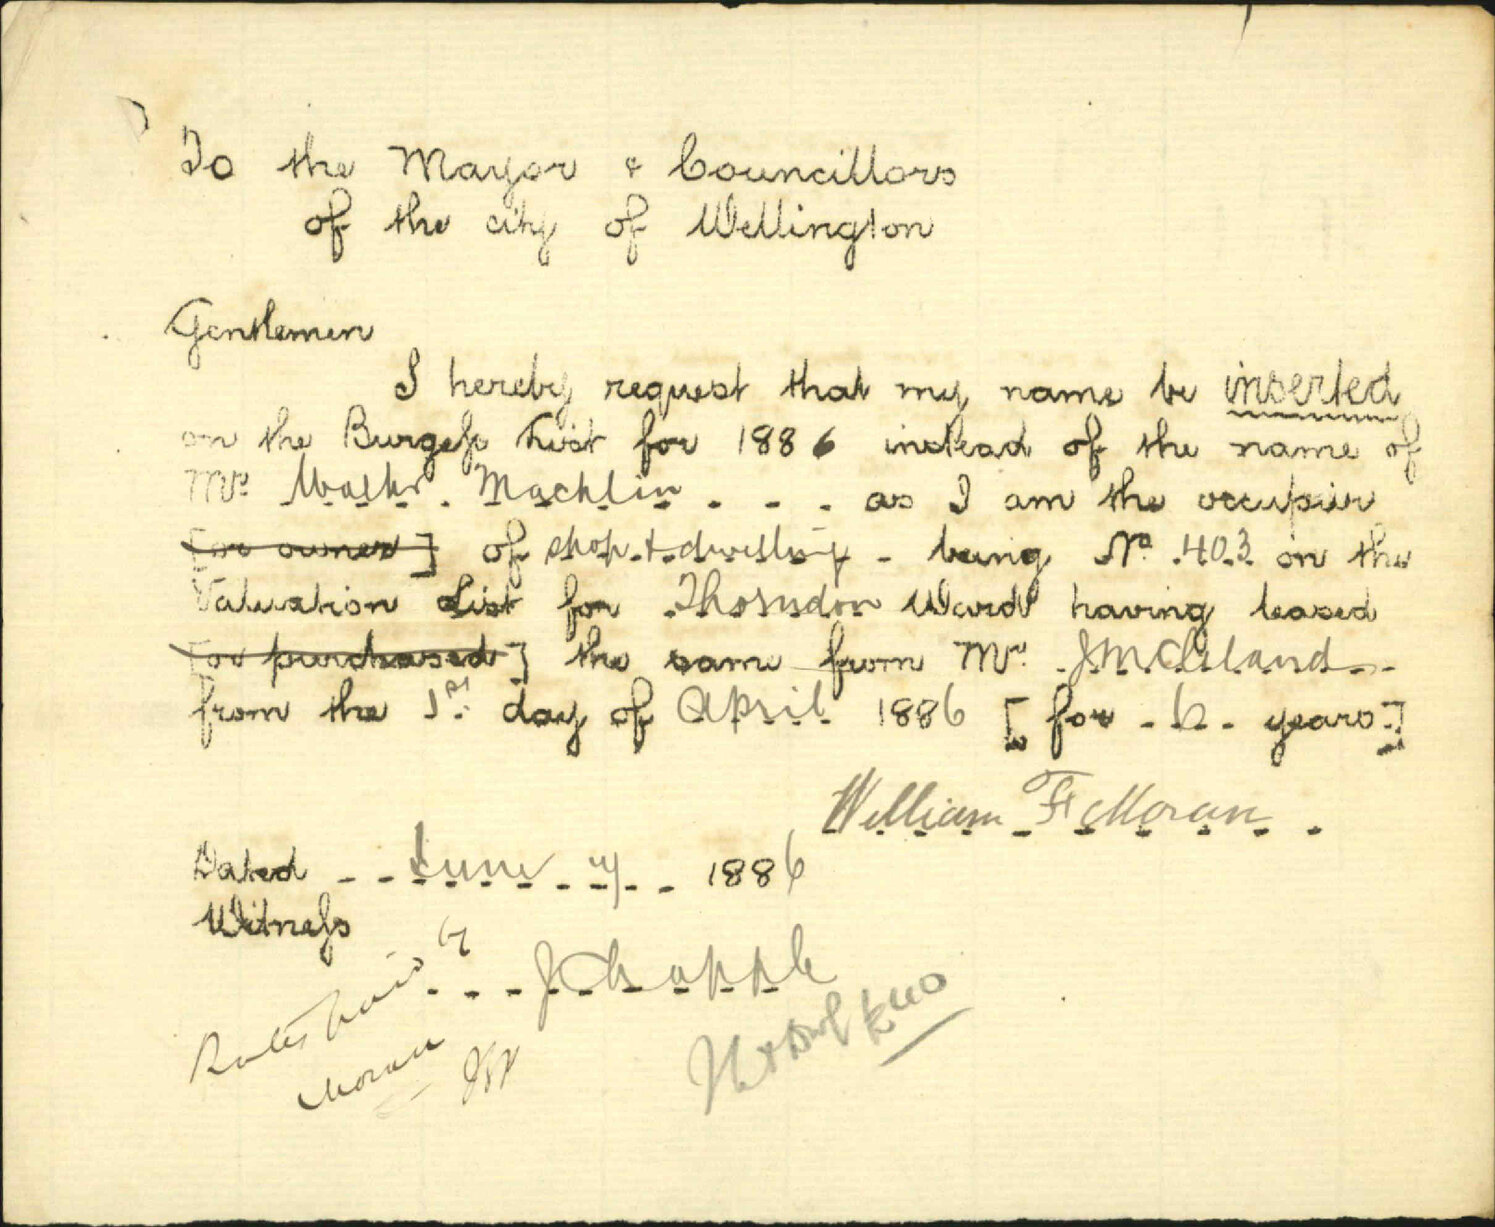 To the Mayor & Councillors
of the city of Wellington
Gentlemen
I hereby request that my name be inserted
on the Burgess List for 1886 instead of the name of
Mr. Walter Macklin as I am the occupier
[or owner] of shop & dwelling being No. 403 on the
Valuation List for Thorndon Ward having leased
[or purchased] the same from Mr. J McCleland
from the 1st day of April 1886 [for 6 years]
William F Moran
Dated June 1886
Witness
J Chapple
Rates paid by
Moran